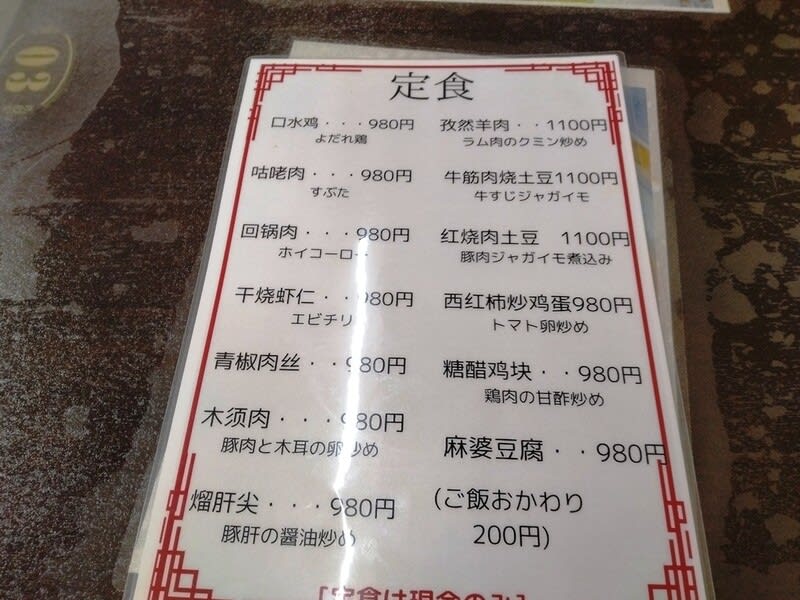 定食
口水鸡・・・980円
よだれ鶏
咕咾肉・・・980円
すぶた
回锅肉・・・980円
ホイコーロー
干烧虾仁・・980円
エビチリ
青椒肉丝・・980円
木须肉・・・980円
豚肉と木耳の卵炒め
熘肝尖・・・980円
豚肝の醤油炒め
孜然羊肉・・1100円
ラム肉のクミン炒め
牛筋肉烧土豆1100円
牛すじジャガイモ
红烧肉土豆 1100円
豚肉ジャガイモ煮込み
西红柿炒鸡蛋980円
トマト卵炒め
糖醋鸡块・・980円
鶏肉の甘酢炒め
麻婆豆腐・・980円
(ご飯おかわり
200円)
[定食は現金のみ]